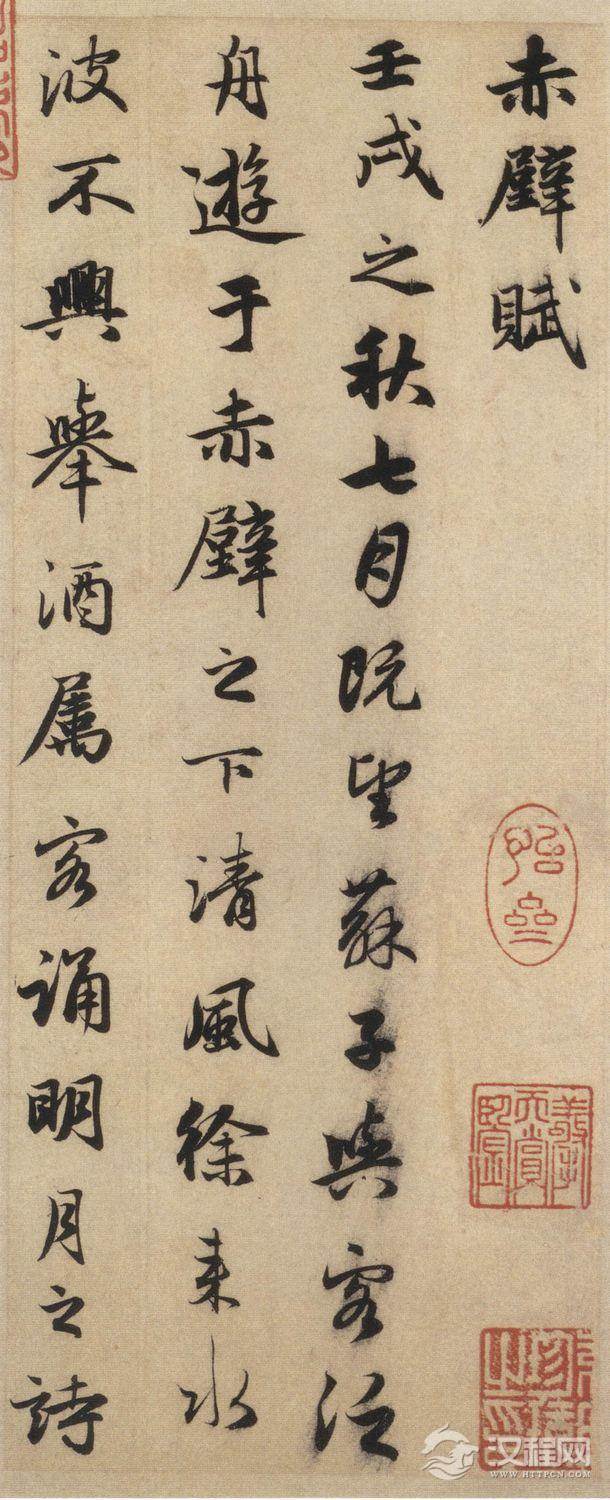 赤壁賦
壬戌之秋七月既望蘇子與客泛
舟遊于赤壁之下清風徐来水
波不興舉酒属客誦明月之詩
汉程网
WWW.HTTPCN.COM